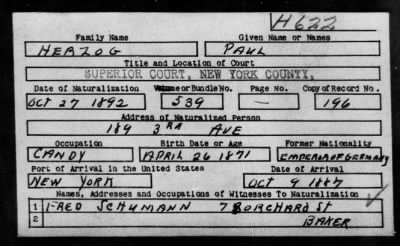 H622
Family Name Given Name or Names
HERZOG PAUL
Title and Location of Court
SUPERIOR COURT, NEW YORK COUNTY.
Date of Naturalization Volume or Bundle No. Page No. Copy of Record No.
OCT 27 1892 539 — 196
Address of Naturalized Person
189 3RD AVE
Occupation Birth Date or Age Former Nationality
CANDY APRIL 26 1871 EMPEROR OF GERMANY
Port of Arrival in the United States Date of Arrival
NEW YORK OCT 9 1887
Names, Addresses and Occupations of Witnesses To Naturalization
1 FRED SCHUMANN 7 BORCHARD ST
2 BAKER